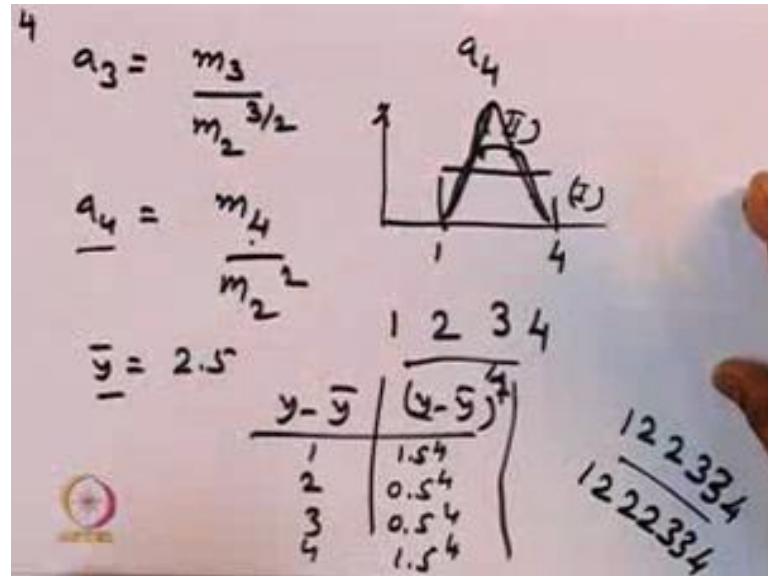 4
a₃ = m₃ / m₂^3/2
a₄
(II)
(I)
1 4
a₄ = m₄ / m₂²
1 2 3 4
ȳ = 2.5
y - ȳ | (y - ȳ)⁴
1 1.5⁴
2 0.5⁴
3 0.5⁴
4 1.5⁴
122334
1222334